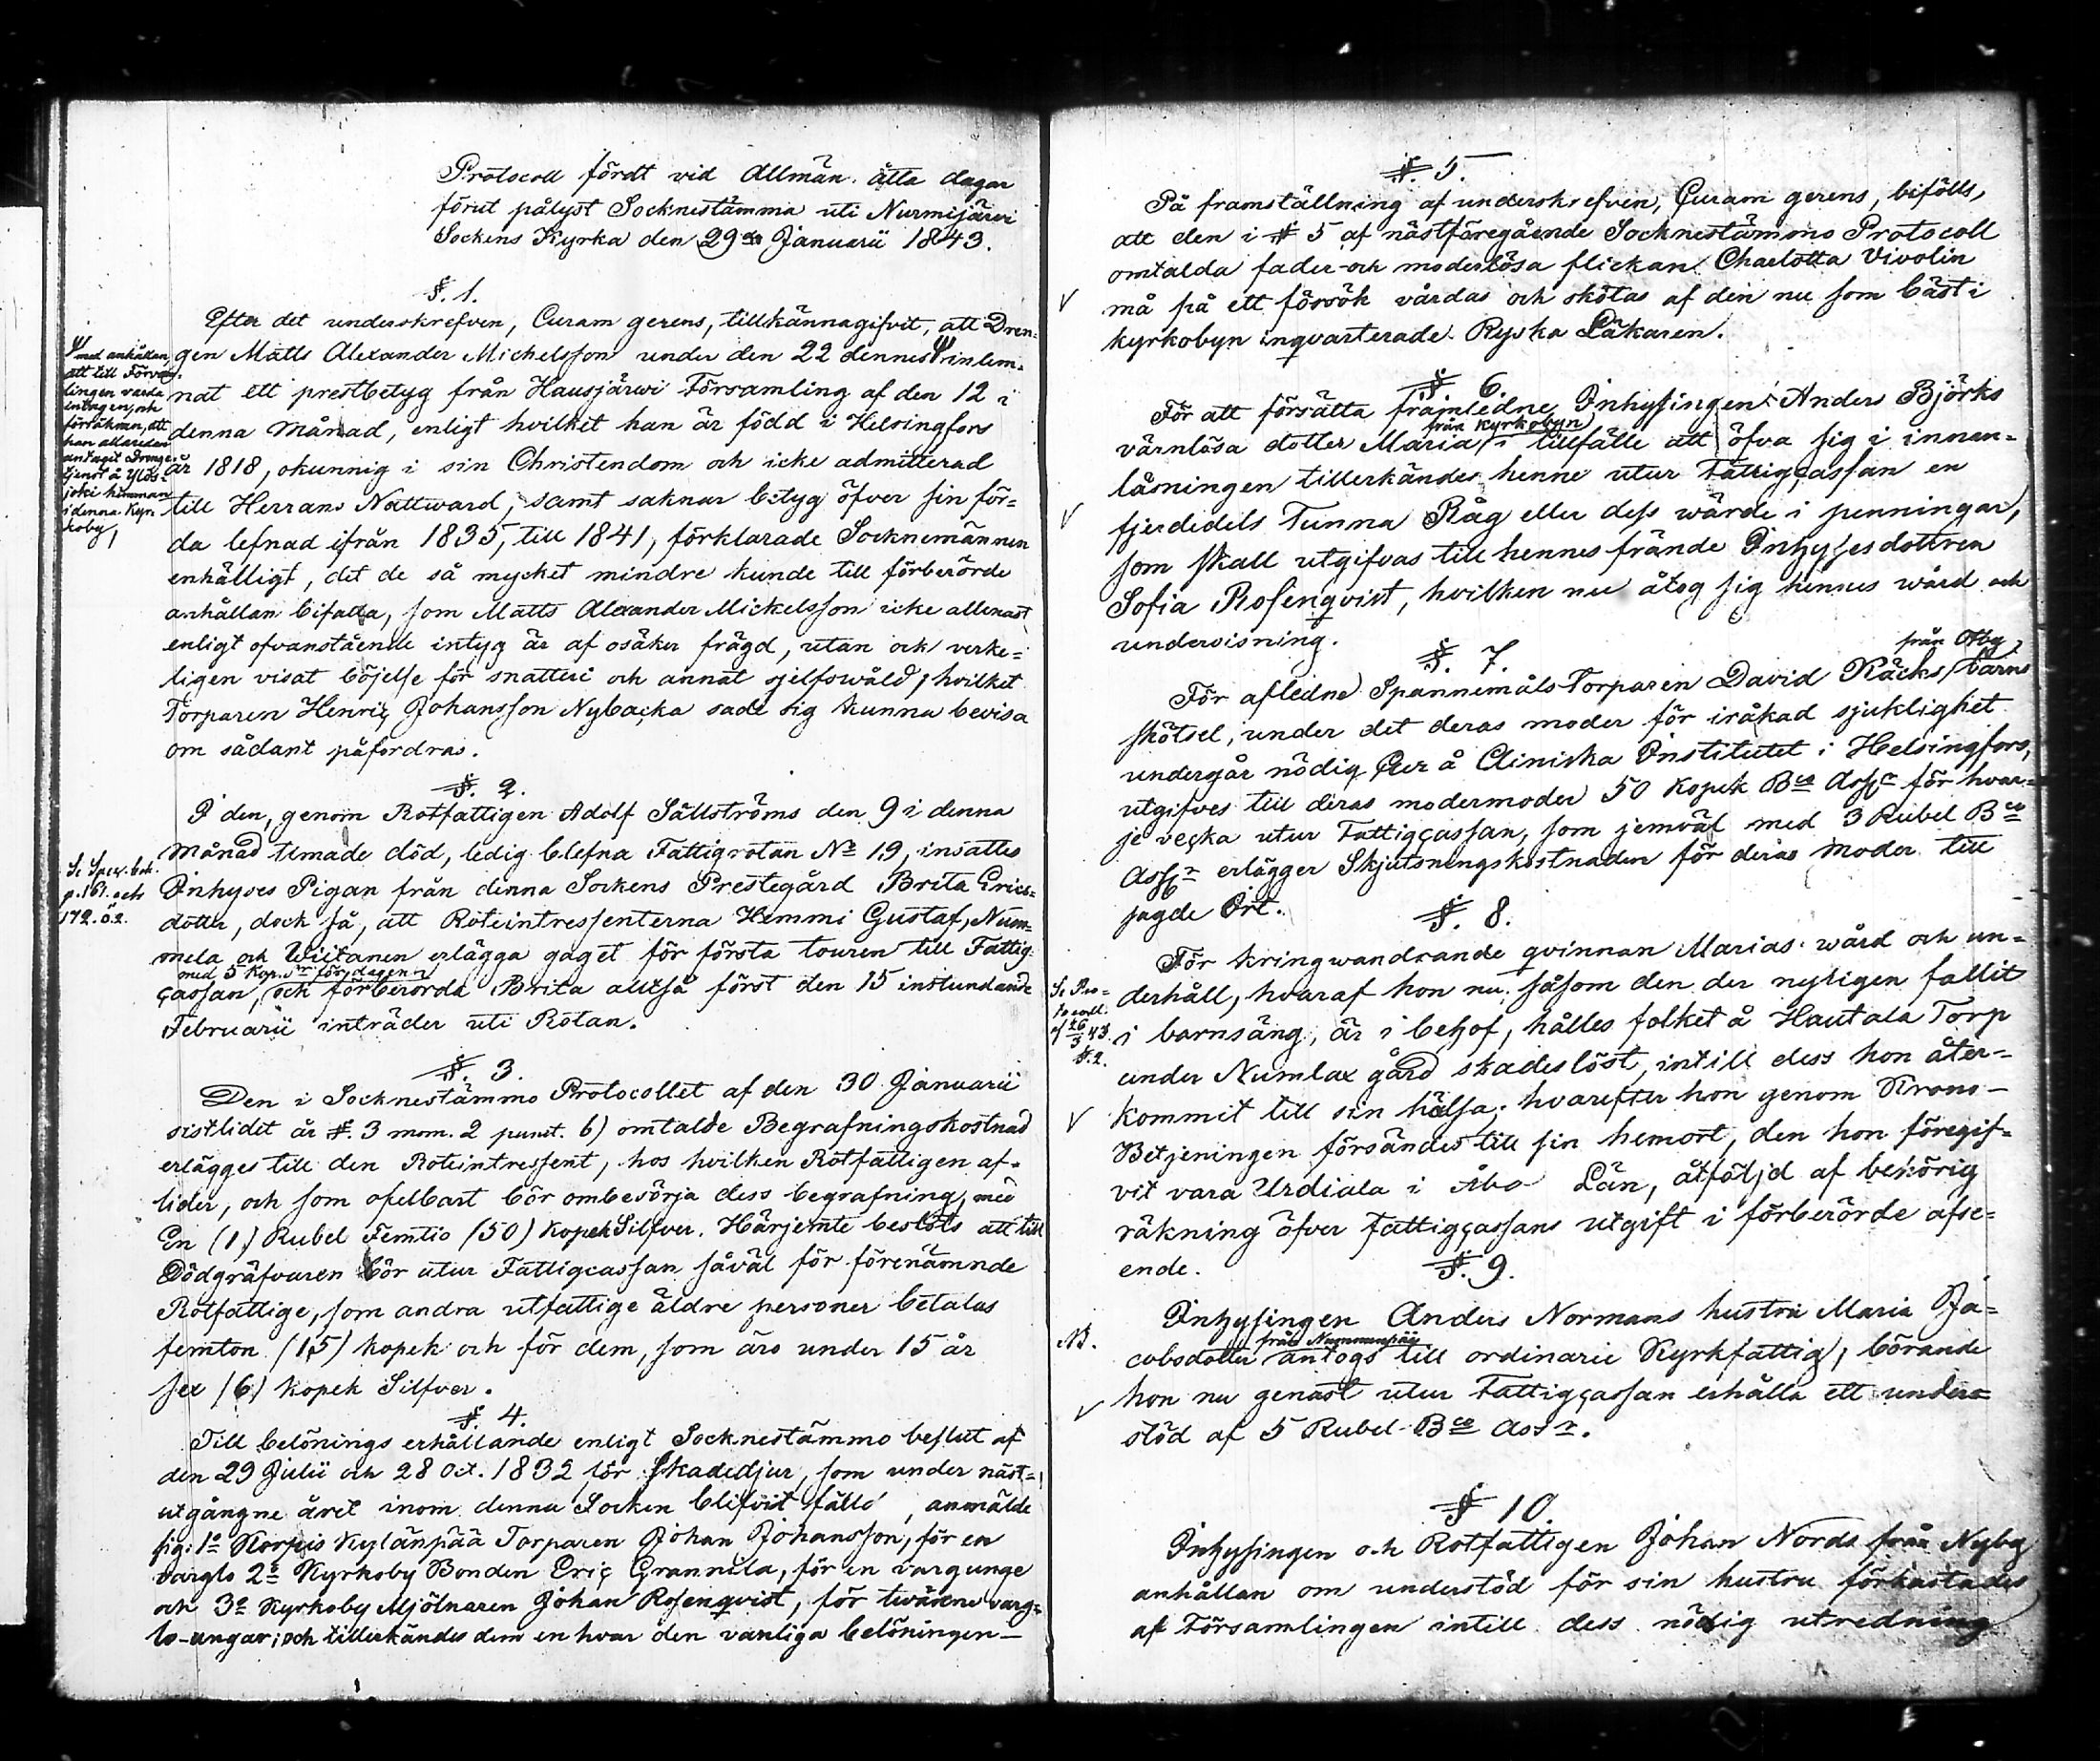 Protocoll fördt vid Allmän åtta dagar
förut pålyst Socknestämma uti Nurmijärvi
Sockens Kyrka den 29de Januarii 1843.
§. 1.
Efter det underskrefven, Curam gerens, tillkännagifvit, att Dren-
gen Matts Alexander Michelsson under den 22 dennes Ψ inlem-
nat ett prestbetyg från Hausjärwi Församling af den 12 i
denna Månad, enligt hvilket han är född i Helsingfors
år 1818, okunnig i sin Christendom och icke admitterad
till Herrans Nattward, samt saknar betyg öfver sin för-
da lefnad ifrån 1835, till 1841, förklarade Socknemännen
enhälligt, det de så mycket mindre kunde till förberörde
anhållan bifalla, som Matts Alexander Mickelsson icke allenast
enligt ofvanstående intyg är af osäker frägd, utan ock verke-
ligen visat böjelse för snatteri och annat sjelfswåld, hvilket
Torparen Henric Johansson Nybacka sade sig kunna bevisa
om sådant påfordras.
Ψ med anhållan
att till Försam-
lingen varda
intagen, och
försäkran, att
han allaredan
antagit Drenge-
tjenst å Ylös-
joki hemman
i denna Kyr-
koby,
§. 2.
I den, genom Rotfattigen Adolf Sällströms den 9 i denna
Månad timade död, ledig blefna Fattigrotan No 19, insattes
Inhyses Pigan från denna Sockens Prestegård Brita Erics-
dotter, dock så, att Roteintressenterna Hemmi Gustaf, Num-
mela och Wiitanen erlägga gaget för första touren till Fattig-
med 5 Kop. Sr för dagen
cassan, och förberörda Brita alltså först den 15 instundande
Februarii inträder uti Rotan.
p. 161. och
172. ö. 2.
§. 3.
Den i Socknestämmo Protocollet af den 30 Januarii
sistlidet år §. 3 mom. 2 punct. 6) omtalde Begrafningskostnad
erlägges till den Roteintressent, hos hvilken Rotfattigen af-
lider, och som ofelbart bör ombesörja dess begrafning, med
En (1) Rubel Femtio (50) kopek Silfver. Härjemte beslöts att till
Dödgräfvaren bör utur Fattigcassan såväl för förenämnde
Rotfattige, som andra utfattige äldre personer betalas
femton (15) kopek och för dem, som äro under 15 år
sex (6) kopek Silfver.
§. 4.
Till belönings erhållande enligt Socknestämmo beslut af
den 29 Julii och 28 Oct. 1832 för skadedjur, som under näst-
utgångne året inom denna Socken blifvit fälld, anmälde
sig: 1o Korpis Kylänpää Torparen Johan Johansson, för en
varglo 2o Kyrkoby Bonden Eric Grannila, för en vargunge
och 3o Kyrkoby Mjölnaren Johan Rosenqvist, för twänne varg-
lo-ungar; och tillerkändes dem en hvar den vanliga belöningen—
§. 5.
På framställning af underskrefven, Curam gerens, bifölls,
att den i § 5 af nästföregående Socknestämmo Protocoll
omtalda fader- och moderlösa flickan Charlotta Vivolin
må på ett försök vårdas och skötas af den nu som bäst i
kyrkobyn inqvarterade Ryska Läkaren.
§. 6.
För att försätta framledne Inhysingen Anders Björks
från Kyrkobyn
värnlösa dotter Maria i tillfälle att öfva sig i innan-
läsningen tillerkändes henne utur Fattigcassan en
fjerdedels Tunna Råg eller dess wärde i penningar,
som skall utgifvas till hennes frände Inhysesdottren
Sofia Rosenqvist, hvilken nu åtog sig hennes wård och
undervisning.
§. 7.
från Åby
För afledne Spannemåls-Torparen David Räcks barns
skötsel, under det deras moder för iråkad sjuklighet
undergår nödig Cur å Cliniska Institutet i Helsingfors,
utgifves till deras modermoder 50 kopek Bco Assr för hvar-
je vecka utur Fattigcassan, som jemväl med 3 Rubel Bco
Assr erlägger Skjutsningskostnaden för deras Moder till
sagde Ort.
§. 8.
För kringwandrande qvinnan Marias wård och un-
derhåll, hvaraf hon nu, såsom den der nyligen fallit
i barnsäng, är i behof, hålles folket å Hautala Torp
under Numlax gård skadeslöst, intill dess hon åter-
kommit till sin hälsa; hvarefter hon genom Krono-
Betjeningen försändes till sin hemort, den hon föregif-
vit vara Urdiala i Åbo Län, åtföljd af behörig
räkning öfver Fattigcassans utgift i förberörde afse-
ende.
Se Pro-
tocoll.
af 26/3 43.
§. 2.
§. 9.
Inhysingen Anders Normans hustru Maria Ja-
från Nummenpää
cobsdotter antogs till ordinarie Kyrkfattig, börande
hon nu genast utur Fattigcassan erhålla ett under-
stöd af 5 Rubel Bco Assr.
NB.
§ 10.
Inhysingen och Rotfattigen Johan Nords från Nyby
anhållan om understöd för sin hustru förkastades
af Församlingen intill dess nödig utredning